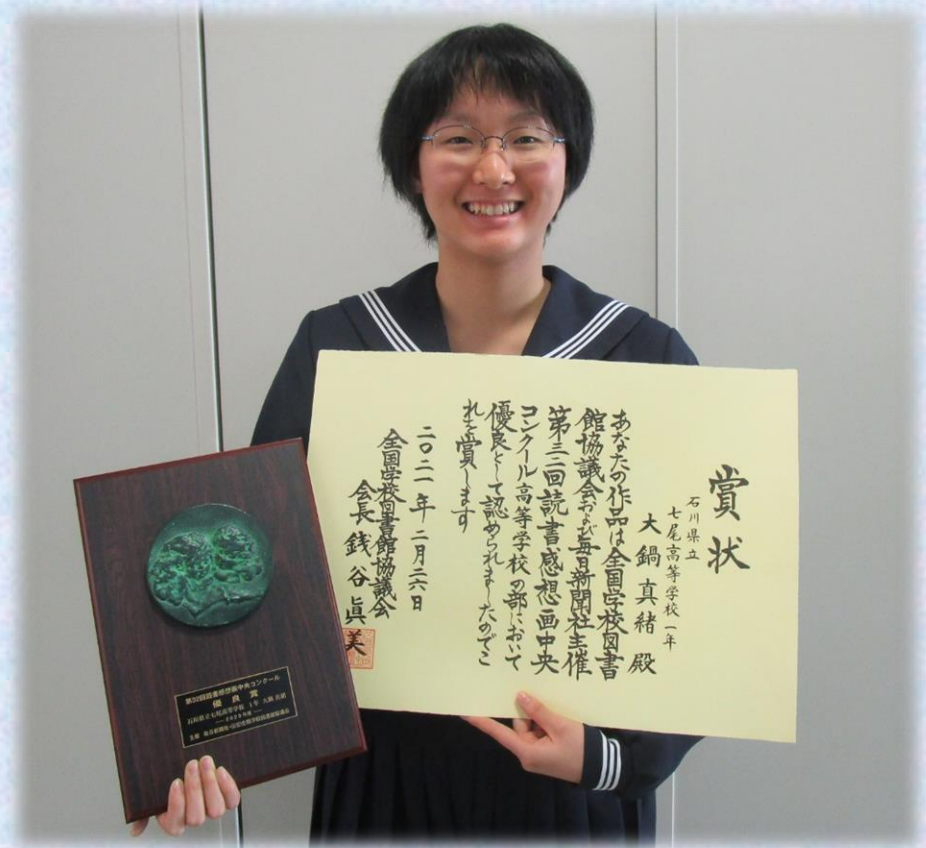 賞状
石川県立
七尾高等学校一年
大鍋真緒殿
あなたの作品は全国学校図書
館協議会および毎日新聞社主催
第三二回読書感想画中央
コンクール高等学校の部において
優良として認められましたのでこ
れを賞します
二〇二一年二月二六日
全国学校図書館協議会
会長銭谷眞美
第32回読書感想画中央コンクール
優良賞
石川県立七尾高等学校 1年 大鍋真緒